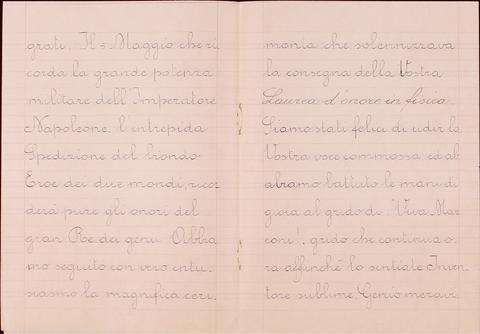 grati. Il 5 Maggio che ri
corda la grande potenza
militare dell'Imperatore
Napoleone, l'intrepida
Spedizione del biondo
Eroe dei due mondi, ricor
derà pure gli onori del
gran Re dei geni. Abbia
mo seguito con vero entu-
siasmo la magnifica ceri-
monia che solennizzava
la consegna della Vostra
Laurea d'onore in fisica.
Siamo stati felici di udir la
Vostra voce commossa, ed ab
abiamo battuto le mani di
gioia al grido di "Viva Mar
coni!, grido che continua o-
ra affinchè lo sentiate Inven-
tore sublime, Genio meravi-